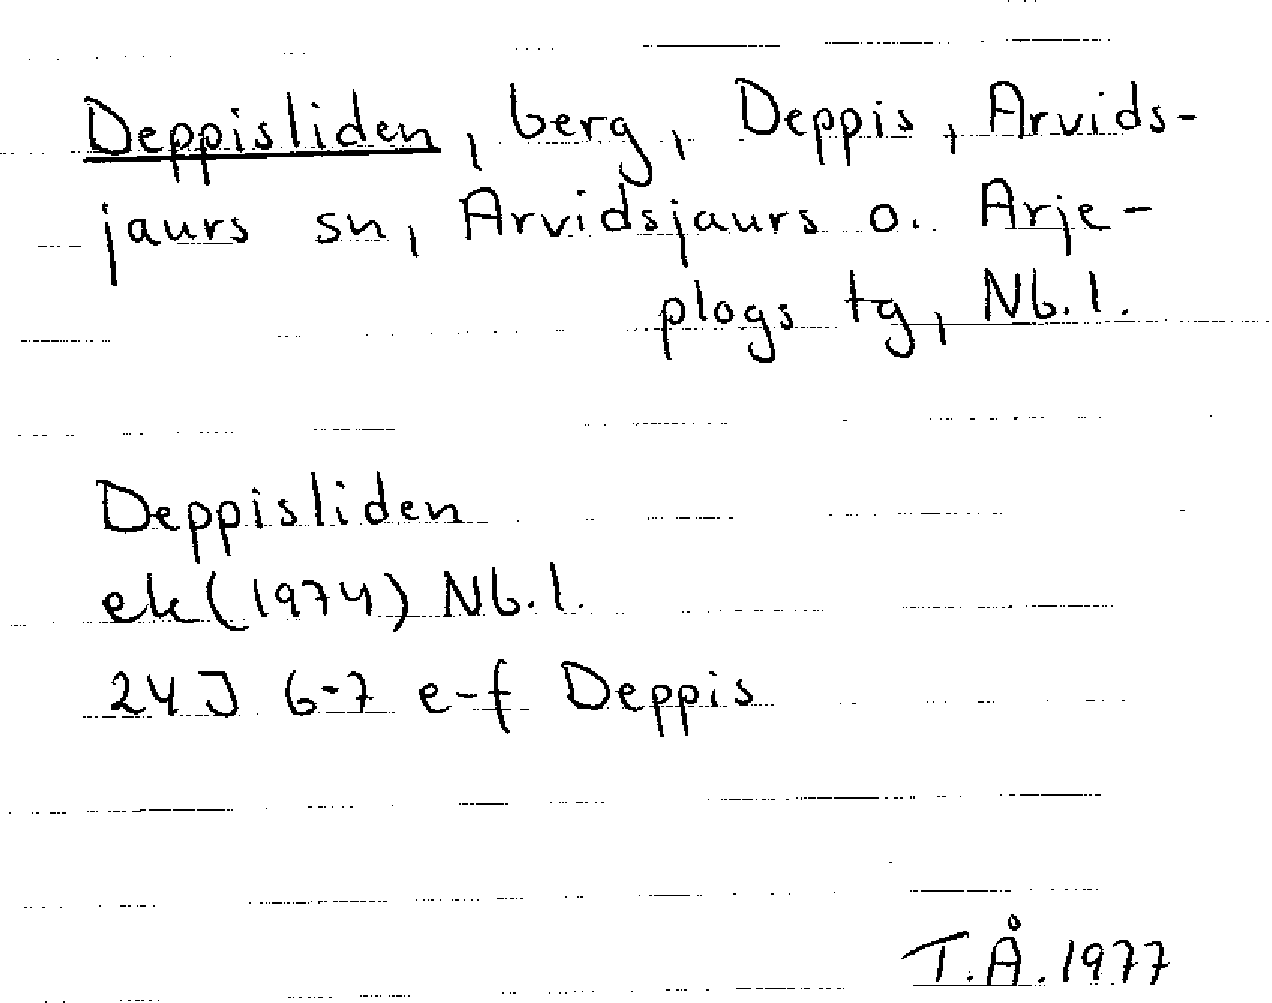 Deppisliden, berg, Deppis, Arvids-
jaurs sn, Arvidsjaurs o. Arje-
plogs tg, Nb.l.
Deppisliden
ek (1974) Nb.l.
24J 6-7 e-f Deppis
T.Å. 1977